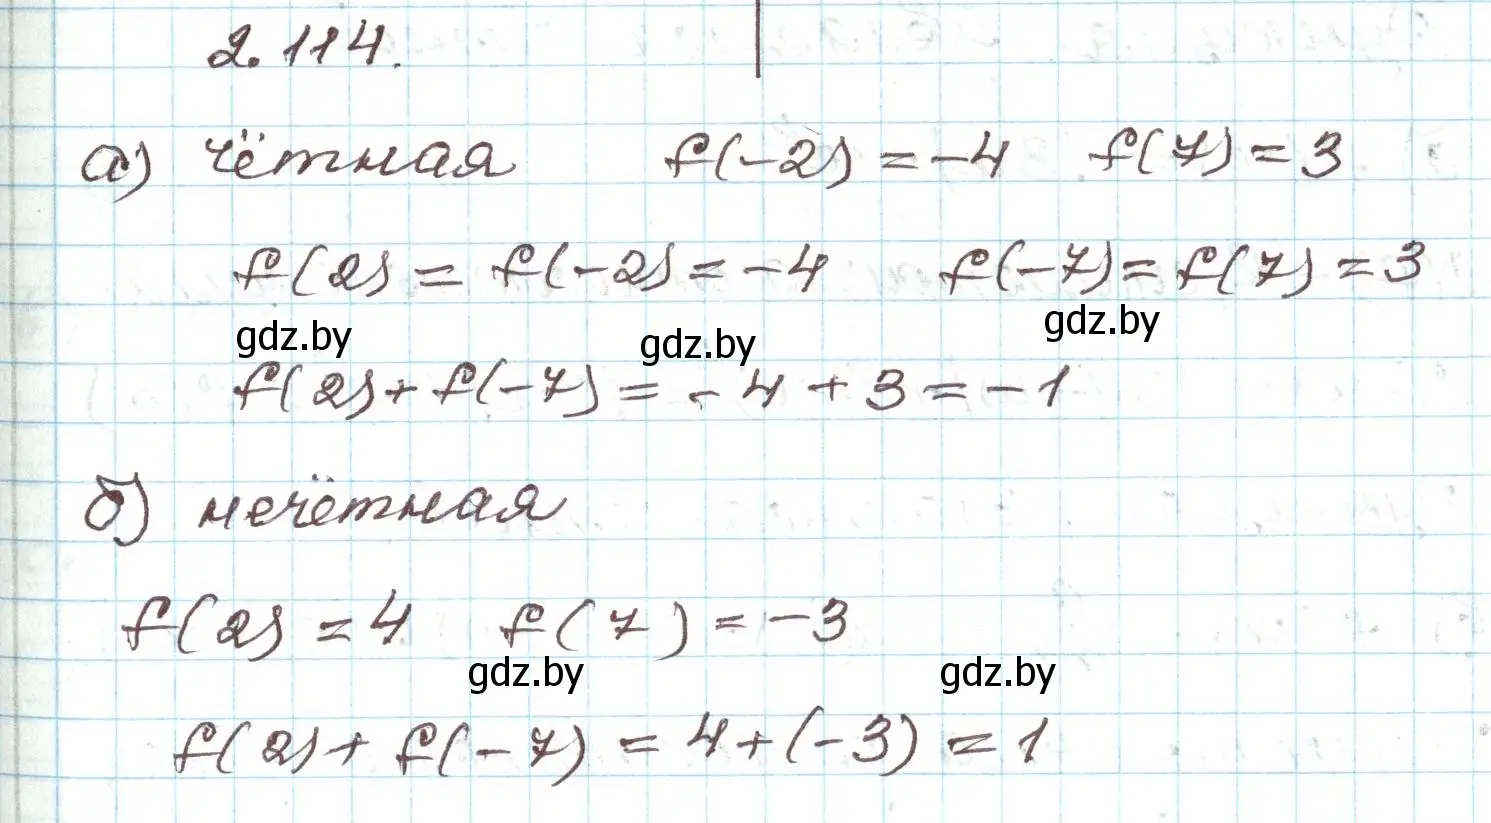 2.114.
а) чётная f(-2) = -4 f(7) = 3
f(2) = f(-2) = -4 f(-7) = f(7) = 3
gdz.by gdz.by gdz.by
f(2) + f(-7) = -4 + 3 = -1
б) нечётная
f(2) = 4 f(7) = -3
gdz.by gdz.by
f(2) + f(-7) = 4 + (-3) = 1